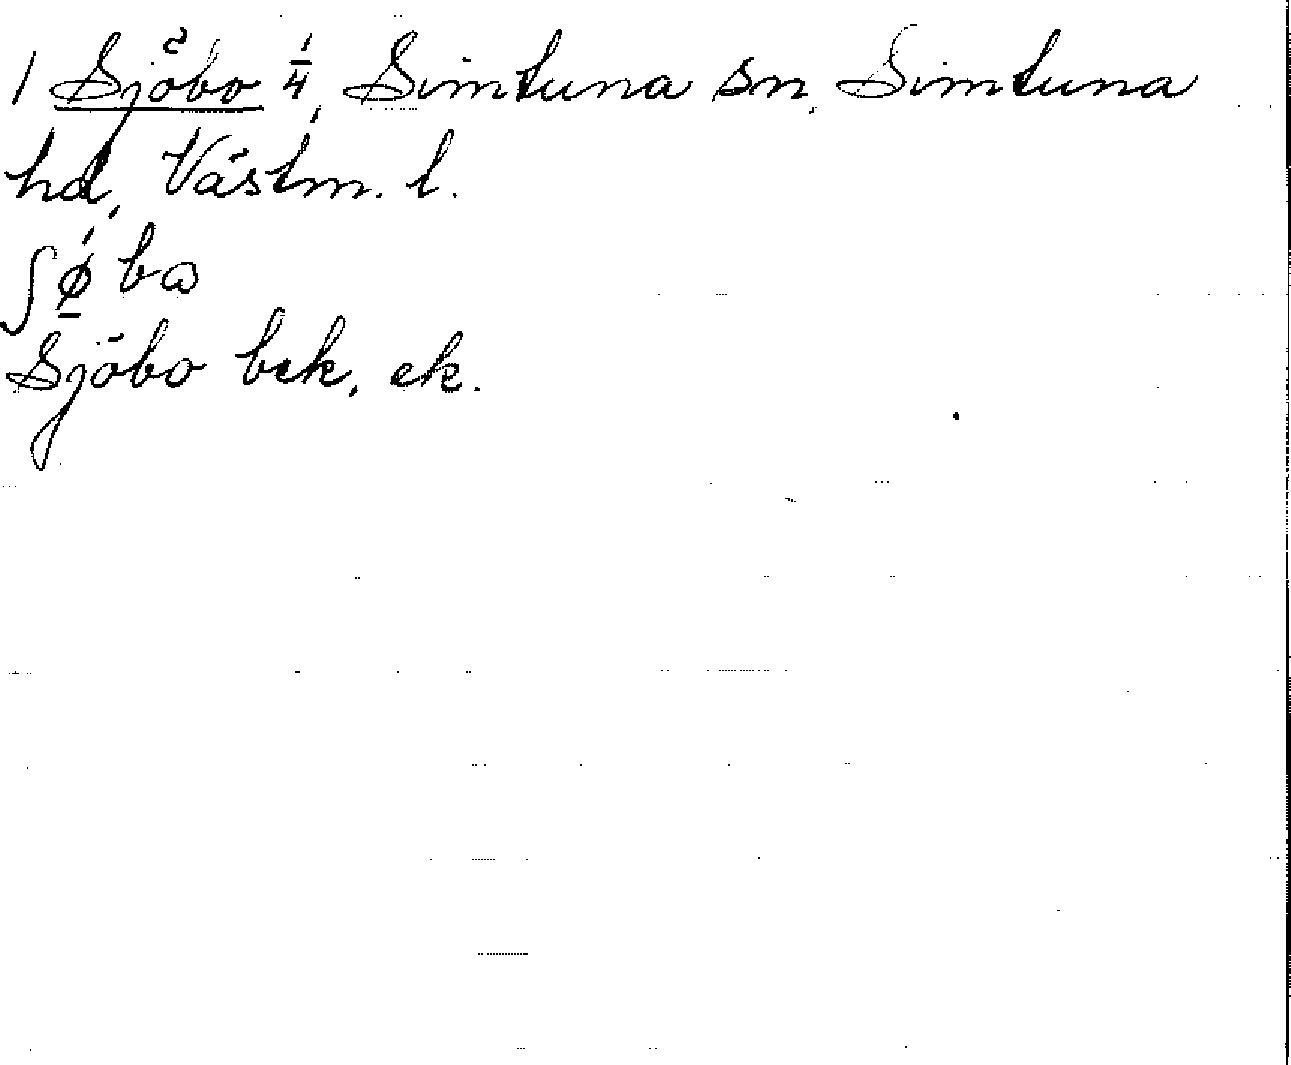 1 Sjöbo 1/4, Simtuna sn, Simtuna
hd, Västm. l.
ʃǿ̱ bɷ
Sjöbo bek, ek.